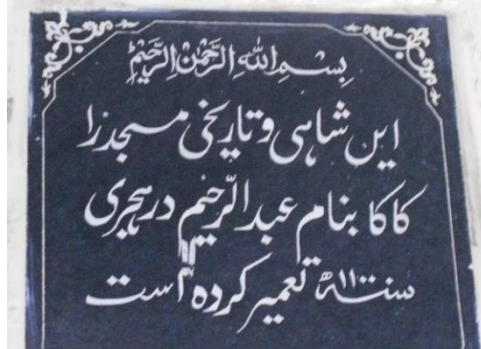 بِسْمِ اللهِ الرَّحْمٰنِ الرَّحِيْمِ
این شاہی و تاریخی مسجد را
کاکا بنام عبدالرّحیم در ہجری
سنہ ۱۱۰۰ھ تعمیر کردہ است